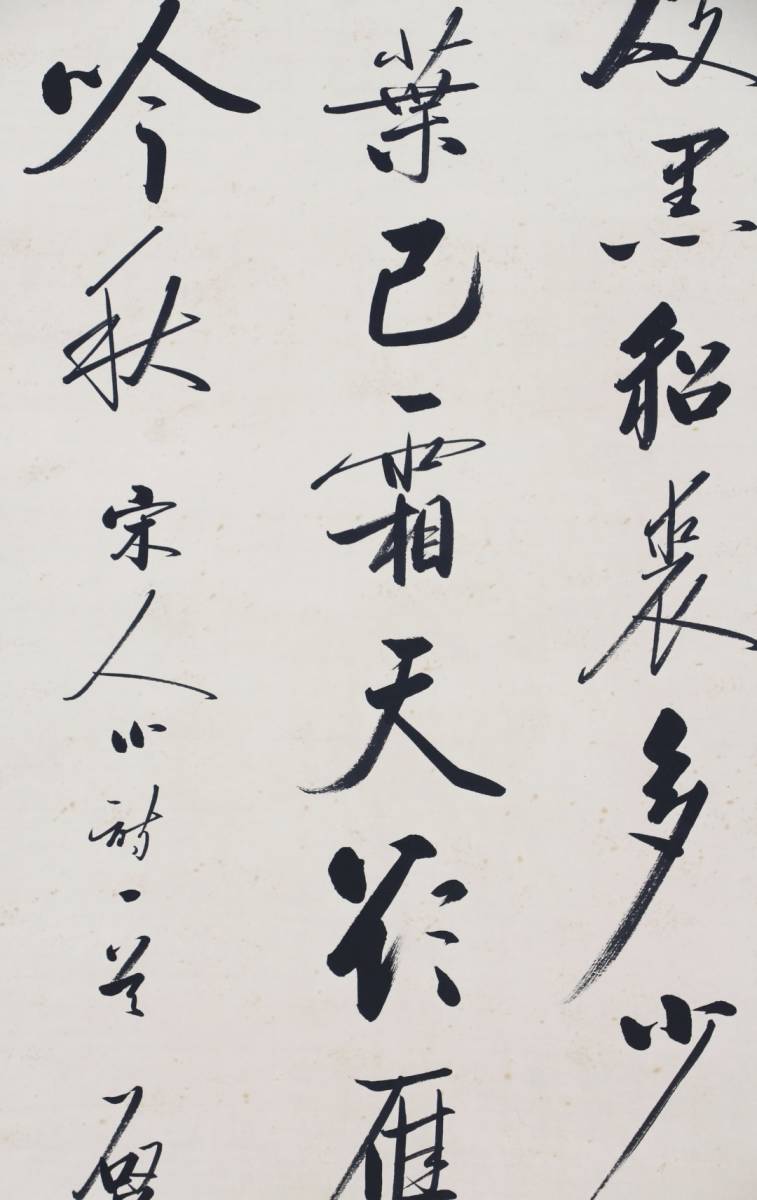 黑貂裘多少
葉已霜天雁
吟秋 宋人小詩一首 啟